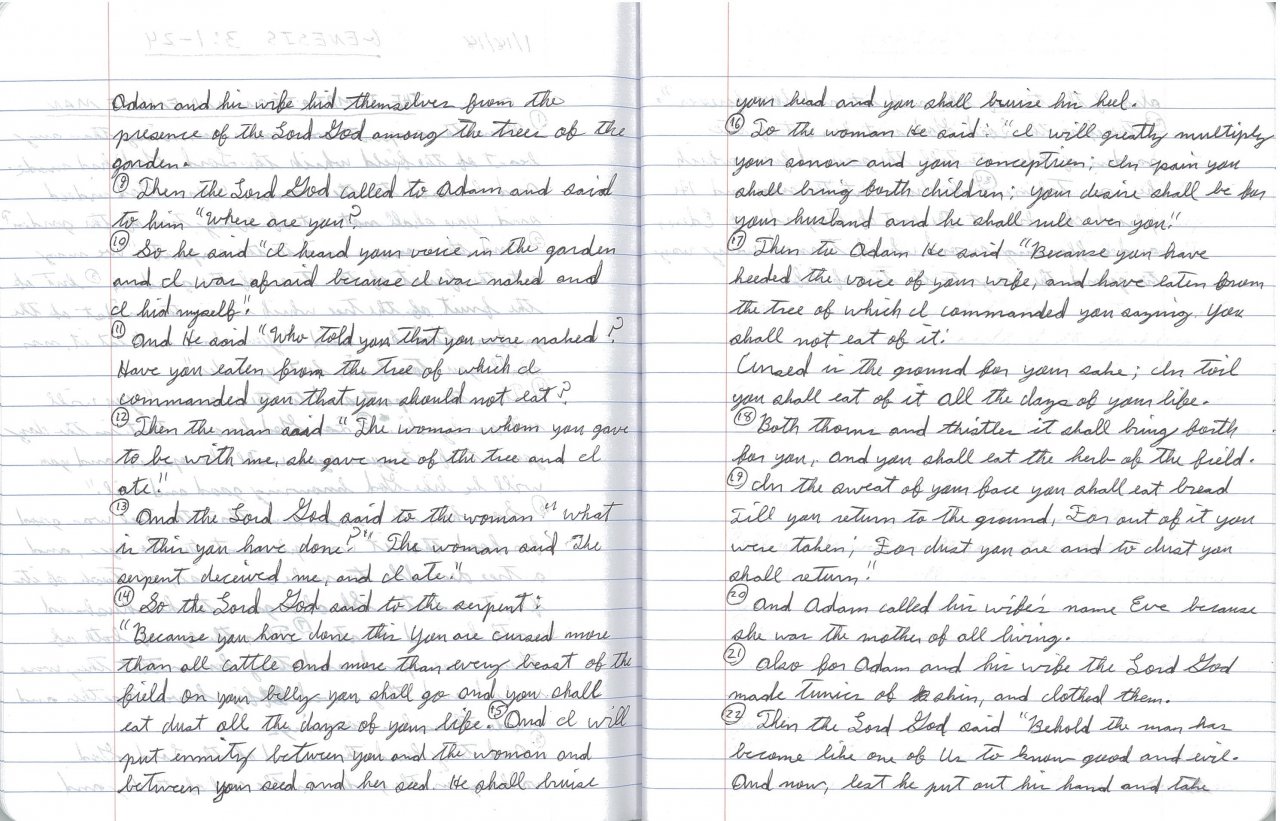 Adam and his wife hid themselves from the
presence of the Lord God among the trees of the
garden.
⑨ Then the Lord God called to Adam and said
to him "Where are you?
⑩ So he said "I heard your voice in the garden
and I was afraid because I was naked and
I hid myself."
⑪ And He said "Who told you that you were naked?
Have you eaten from the tree of which I
commanded you that you should not eat?
⑫ Then the man said "The woman whom you gave
to be with me, she gave me of the tree and I
ate."
⑬ And the Lord God said to the woman "What
is this you have done?" The woman said "The
serpent deceived me, and I ate."
⑭ So the Lord God said to the serpent:
"Because you have done this You are cursed more
than all cattle and more than every beast of the
field on your belly you shall go and you shall
eat dust all the days of your life. ⑮ And I will
put enmity between you and the woman and
between your seed and her seed. He shall bruise
your head and you shall bruise his heel.
⑯ To the woman He said: "I will greatly multiply
your sorrow and your conception; In pain you
shall bring forth children; your desire shall be for
your husband and he shall rule over you."
⑰ Then to Adam He said "Because you have
heeded the voice of your wife, and have eaten from
the tree of which I commanded you saying. You
shall not eat of it:
Cursed is the ground for your sake; In toil
you shall eat of it All the days of your life.
⑱ Both thorns and thistles it shall bring forth
for you, and you shall eat the herb of the field.
⑲ In the sweat of your face you shall eat bread
Till you return to the ground, For out of it you
were taken; For dust you are and to dust you
shall return."
⑳ And Adam called his wife's name Eve because
she was the mother of all living.
㉑ Also for Adam and his wife the Lord God
made Tunics of skin, and clothed them.
㉒ Then the Lord God said "Behold the man has
become like one of Us to know good and evil.
And now, lest he put out his hand and take